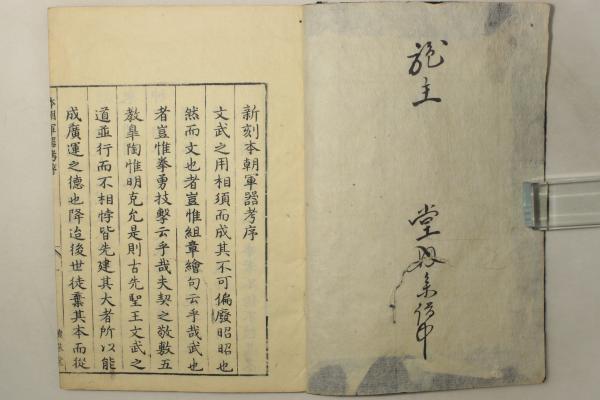 施主
堂
新刻本朝軍器考序
文武之用相須而成其不可偏廢昭昭也
然而文也者豈惟組章繪句云乎哉武也
者豈惟拳勇技擊云乎哉夫契之敬敷五
教皐陶惟明克允是則古先聖王文武之
道並行而不相悖皆先建其大者所以能
成廣運之德也降迨後世徒棄其本而從
本朝軍器考序